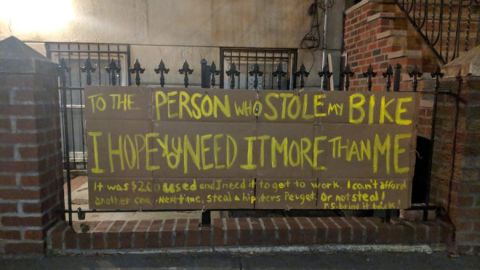 TO THE PERSON WHO STOLE MY BIKE
I HOPE YOU NEED IT MORE THAN ME
It was $200 used and I need it to get to work. I can't afford
another one. Next time, steal a hipsters Peugeot. Or not steal!
P.S. bring it back!